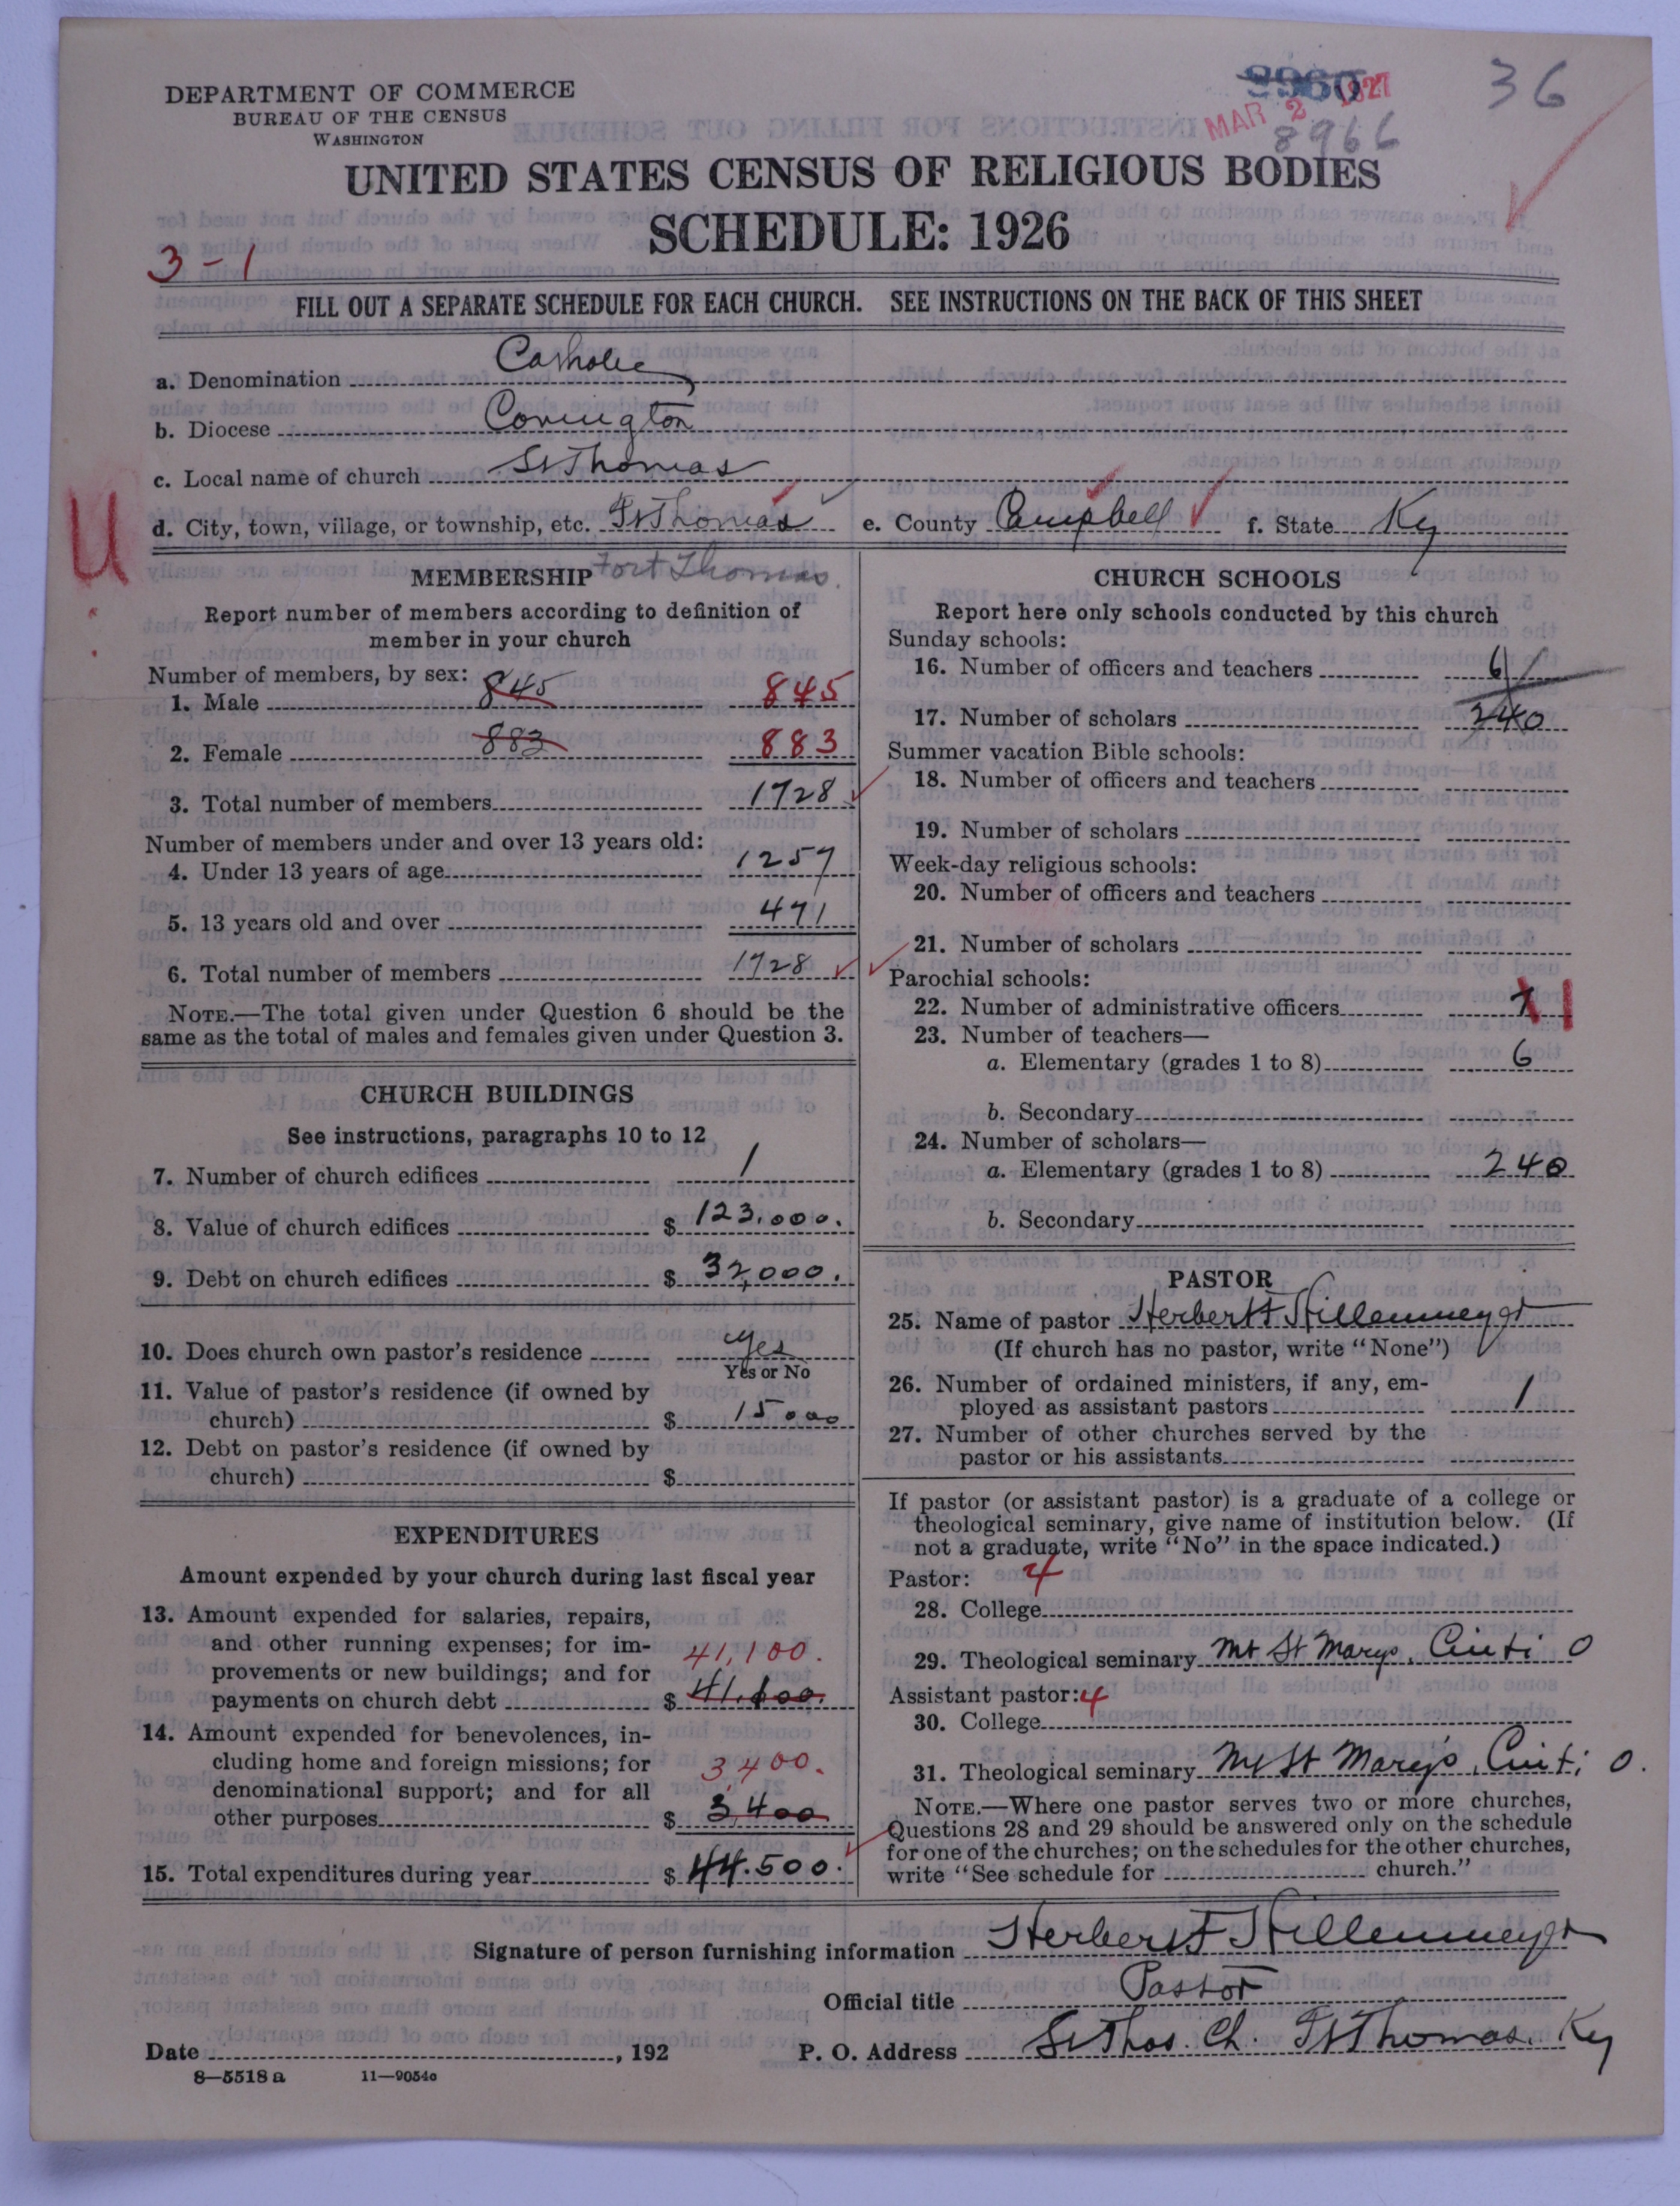 DEPARTMENT OF COMMERCE
BUREAU OF THE CENSUS
WASHINGTON
8960
MAR 2 1927
8966
36
UNITED STATES CENSUS OF RELIGIOUS BODIES
SCHEDULE: 1926
3-1
FILL OUT A SEPARATE SCHEDULE FOR EACH CHURCH. SEE INSTRUCTIONS ON THE BACK OF THIS SHEET
a. Denomination Catholic
b. Diocese Covington
c. Local name of church St Thomas
U
d. City, town, village, or township, etc. Ft Thomas e. County Campbell f. State Ky
Fort Thomas.
MEMBERSHIP
Report number of members according to definition of
member in your church
Number of members, by sex:
1. Male 845 845
2. Female 883 883
3. Total number of members 1728
Number of members under and over 13 years old:
4. Under 13 years of age 1257
5. 13 years old and over 471
6. Total number of members 1728
NOTE.—The total given under Question 6 should be the
same as the total of males and females given under Question 3.
CHURCH BUILDINGS
See instructions, paragraphs 10 to 12
7. Number of church edifices 1
8. Value of church edifices $ 123,000.
9. Debt on church edifices $ 32,000.
10. Does church own pastor's residence yes
Yes or No
11. Value of pastor's residence (if owned by
church) $ 15000
12. Debt on pastor's residence (if owned by
church) $
EXPENDITURES
Amount expended by your church during last fiscal year
13. Amount expended for salaries, repairs,
and other running expenses; for im-
provements or new buildings; and for 41,100.
payments on church debt $
14. Amount expended for benevolences, in-
cluding home and foreign missions; for
denominational support; and for all 3,400.
other purposes $ 3,400
15. Total expenditures during year $ 44.500.
CHURCH SCHOOLS
Report here only schools conducted by this church
Sunday schools:
16. Number of officers and teachers 6
17. Number of scholars 240
Summer vacation Bible schools:
18. Number of officers and teachers
19. Number of scholars
Week-day religious schools:
20. Number of officers and teachers
21. Number of scholars
Parochial schools:
22. Number of administrative officers 1
23. Number of teachers—
a. Elementary (grades 1 to 8) 6
b. Secondary
24. Number of scholars—
a. Elementary (grades 1 to 8) 240
b. Secondary
PASTOR
25. Name of pastor Herbert F Hillenmeyer
(If church has no pastor, write "None")
26. Number of ordained ministers, if any, em-
ployed as assistant pastors 1
27. Number of other churches served by the
pastor or his assistants
If pastor (or assistant pastor) is a graduate of a college or
theological seminary, give name of institution below. (If
not a graduate, write "No" in the space indicated.)
Pastor: 4
28. College
29. Theological seminary Mt St Marys, Cinti O
Assistant pastor: 4
30. College
31. Theological seminary Mt St Mary's, Cinti O.
NOTE.—Where one pastor serves two or more churches,
Questions 28 and 29 should be answered only on the schedule
for one of the churches; on the schedules for the other churches,
write "See schedule for church."
Signature of person furnishing information Herbert F Hillenmeyer
Official title Pastor
Date , 192 P. O. Address St Thos. Ch. Ft Thomas. Ky
8—5518 a 11—9054c